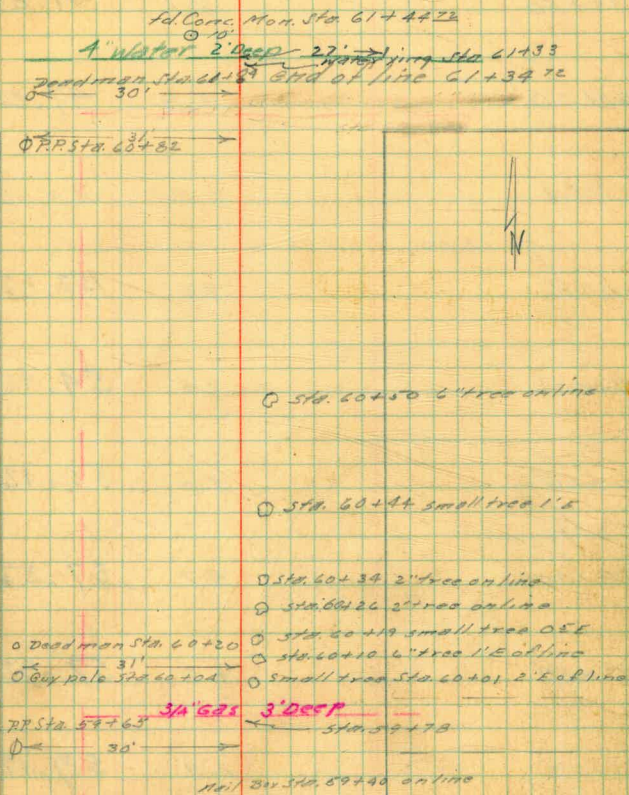 fd. Conc. Mon. Sta. 61+44 72
10'
4" Water 2' Deep 27'
water xing Sta 61+33
Deadman Sta. 60+
30'
End of line 61+34 72
31'
P.P. Sta. 60+82
N
Sta. 60+50 6" tree on line
Sta. 60+44 small tree 1' E
Sta. 60+34 2" tree on line
Sta. 60+26 2" tree on line
Sta. 60+19 small tree
Deadman Sta. 60+20
31'
Sta. 60+10 6" tree 1' E of line
Guy pole Sta 60+04
Small tree Sta. 60+01 2' E of line
3/4" Gas 3' Deep
P.P. Sta. 59+65
Sta. 59+78
30'
Mail Box Sta. 59+40 on line